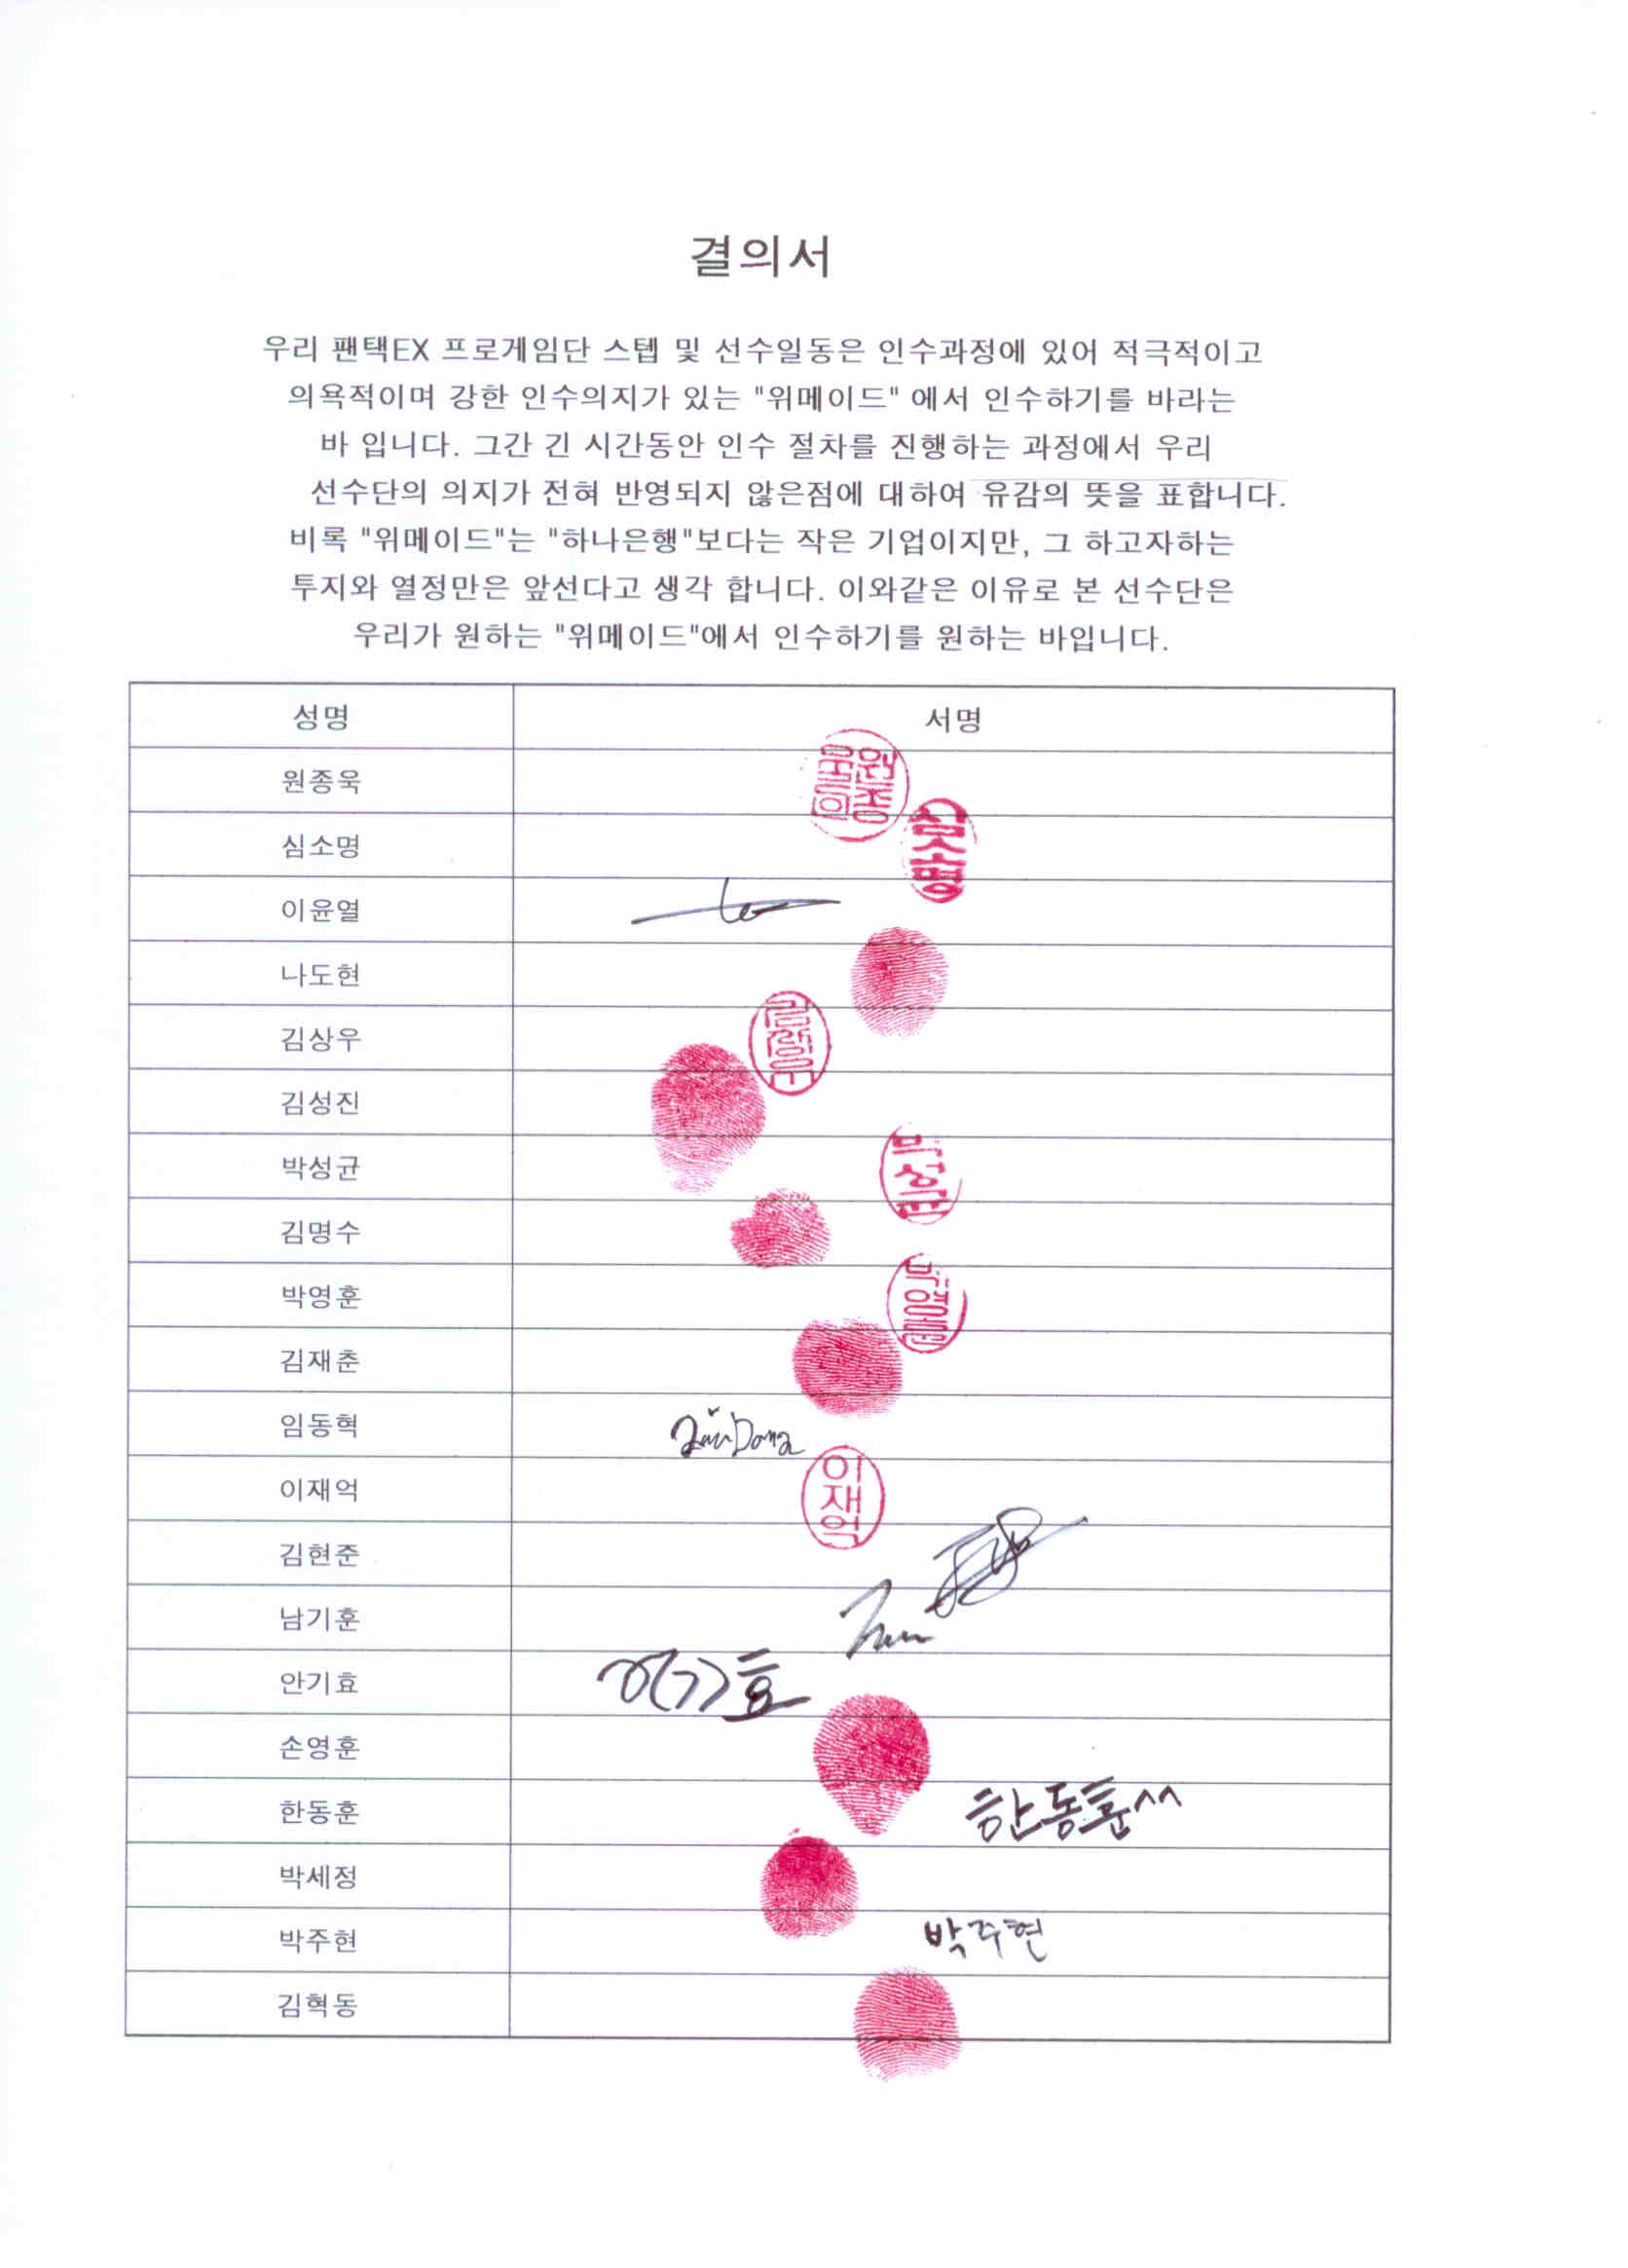 결의서
우리 팬택EX 프로게임단 스텝 및 선수일동은 인수과정에 있어 적극적이고
의욕적이며 강한 인수의지가 있는 "위메이드" 에서 인수하기를 바라는
바 입니다. 그간 긴 시간동안 인수 절차를 진행하는 과정에서 우리
선수단의 의지가 전혀 반영되지 않은점에 대하여 유감의 뜻을 표합니다.
비록 "위메이드"는 "하나은행"보다는 작은 기업이지만, 그 하고자하는
투지와 열정만은 앞선다고 생각 합니다. 이와같은 이유로 본 선수단은
우리가 원하는 "위메이드"에서 인수하기를 원하는 바입니다.
성명 서명
원종욱 원종욱인
심소명 심소명
이윤열
나도현
김상우 김상우
김성진
박성균 박성균
김명수
박영훈 박영훈
김재춘
임동혁
이재억 이재억
김현준
남기훈
안기효 안기효
손영훈
한동훈 한동훈^^
박세정
박주현 박주현
김혁동